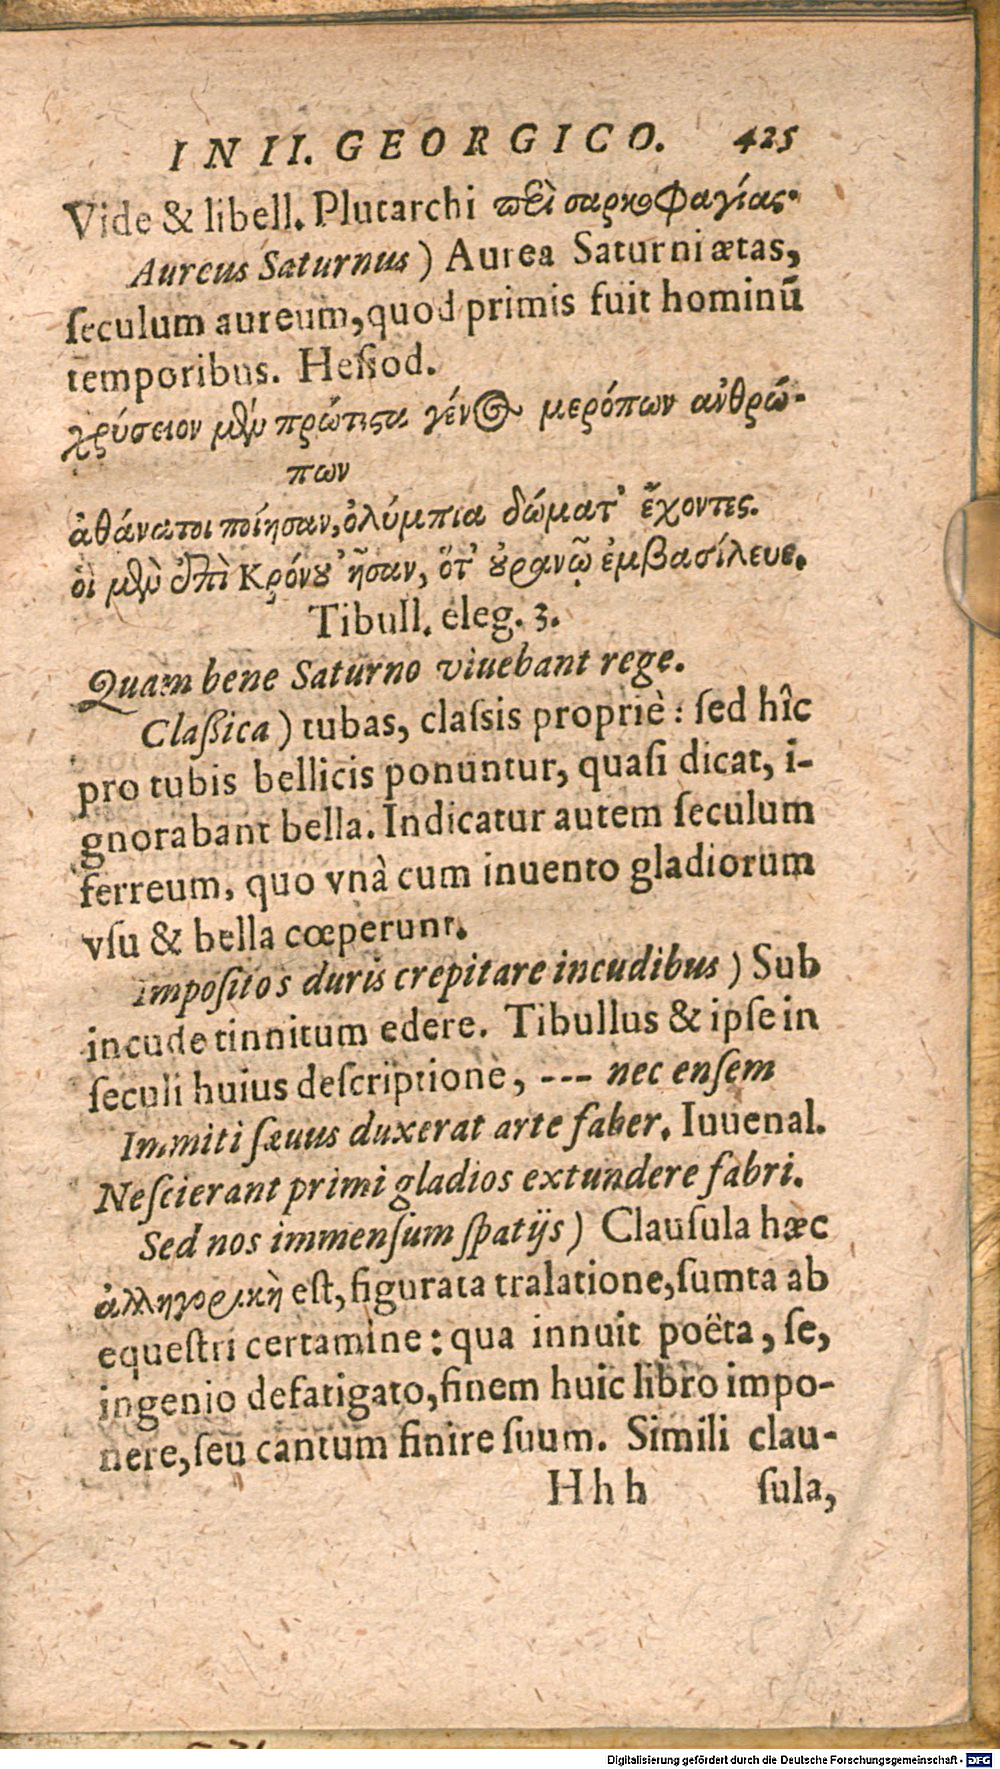 IN II. GEORGICO. 425
Vide & libell. Plutarchi περὶ σαρκοφαγίας.
Aureus Saturnus) Aurea Saturni ætas,
ſeculum aureum, quod primis fuit hominū
temporibus. Heſiod.
χρύσειον μὲν πρώτιστα γένος μερόπων ἀνθρώ-
πων
ἀθάνατοι ποίησαν, ὀλύμπια δώματ' ἔχοντες.
οἱ μὲν ἐπὶ Κρόνου ἦσαν, ὅτ' οὐρανῷ ἐμβασίλευε.
Tibull. eleg. 3.
Quam bene Saturno viuebant rege.
Claßica) tubas, claſsis propriè: ſed hîc
pro tubis bellicis ponuntur, quaſi dicat, i-
gnorabant bella. Indicatur autem ſeculum
ferreum, quo vnà cum inuento gladiorum
vſu & bella cœperunt.
Impoſitos duris crepitare incudibus) Sub
incude tinnitum edere. Tibullus & ipſe in
ſeculi huius deſcriptione, --- nec enſem
Immiti ſæuus duxerat arte faber. Iuuenal.
Neſcierant primi gladios extundere fabri.
Sed nos immenſum ſpatijs) Clauſula hæc
ἀλληγορικὴ eſt, figurata tralatione, ſumta ab
equeſtri certamine: qua innuit poëta, ſe,
ingenio defatigato, finem huic libro impo-
nere, ſeu cantum finire ſuum. Simili clau-
Hhh ſula,
Digitalisierung gefördert durch die Deutsche Forschungsgemeinschaft - DFG